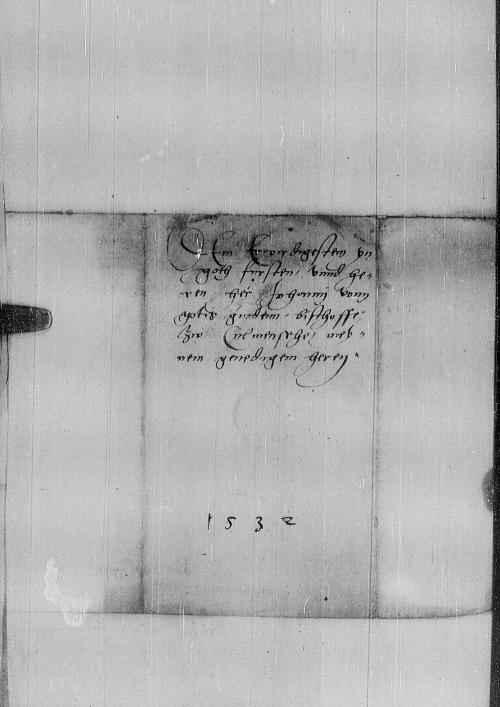 Dem Erwirdigesten yn
goth fursten, vnnd he-
ren her Johanni vonn
gotis gnadenn, bisschoffe
zw Culmensehe, mey-
nem genedigem heren
1532